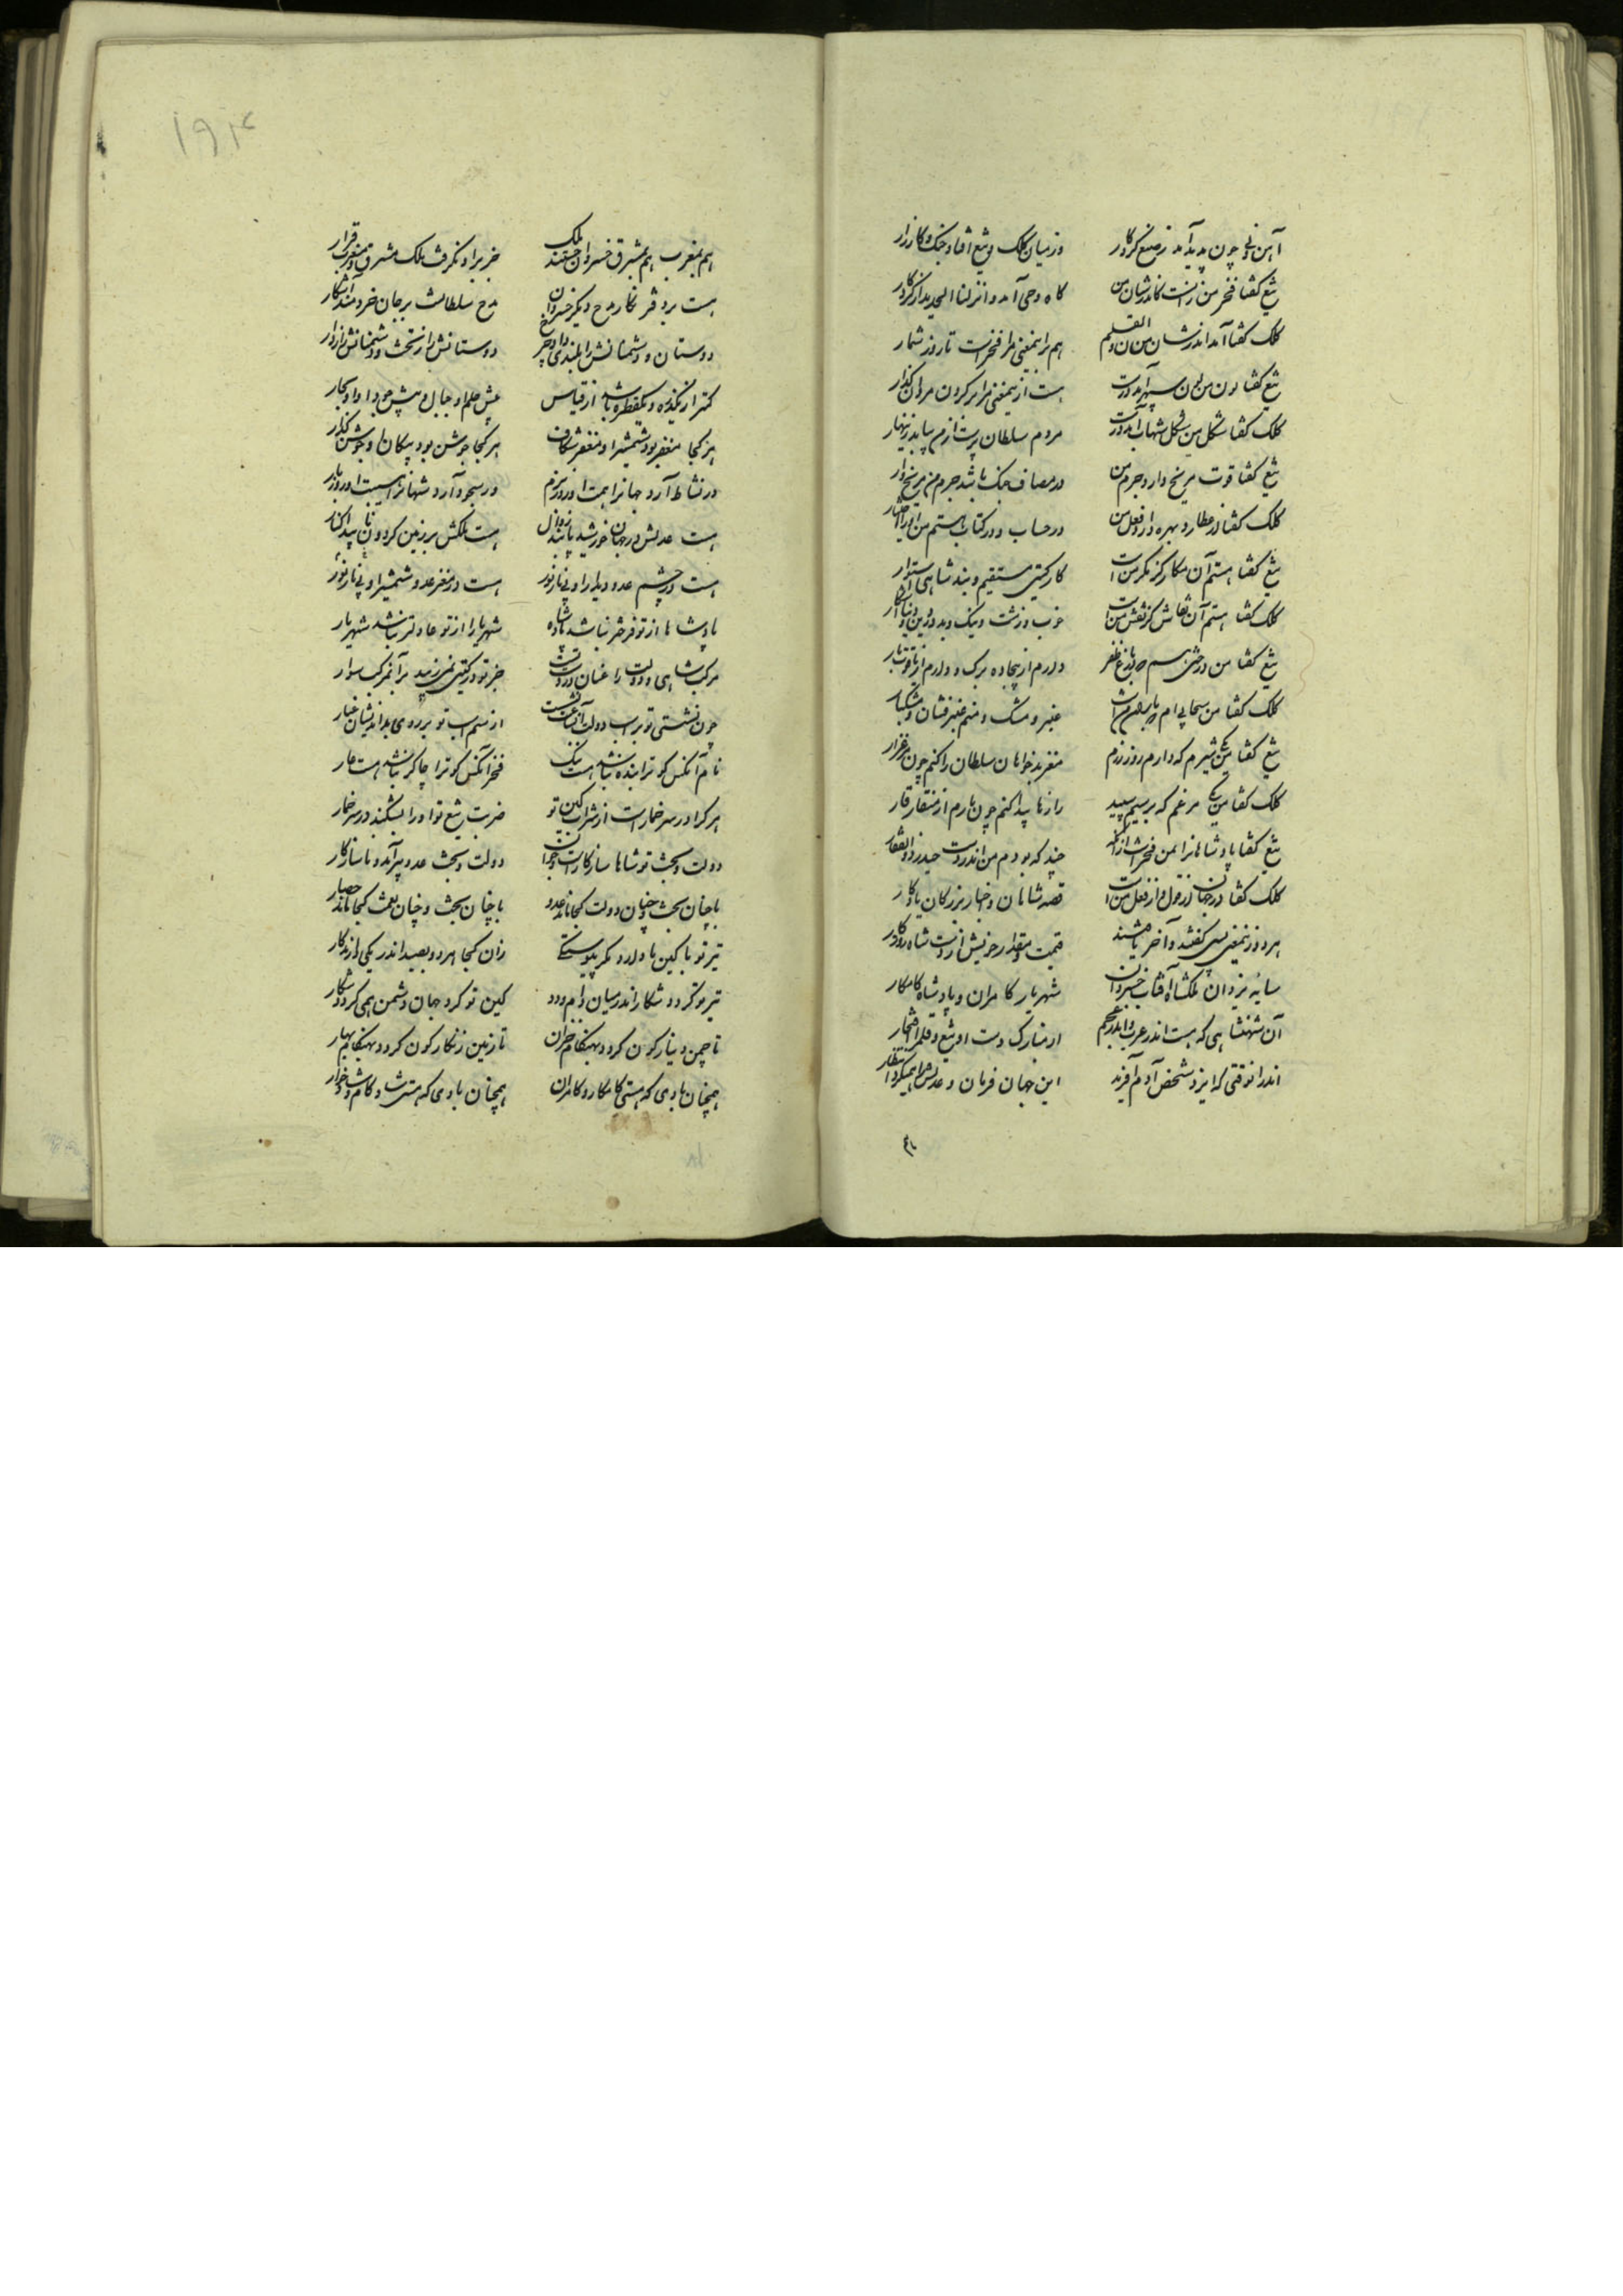 آهن و نی چون پدید آمد ز صنع کردکار
در میان کلک و تیغ افتاد جنک و کارزار
تیغ کفتا فخر من زانست کاندر شان من
کاه وحی آمد و انزلنا الحدید از کردکار
کلک کفتا آمد اندر شان من ن والقلم
هم برا ینمعنی مرا فخر است تا روز شمار
تیغ کفتا لون من لون سپهر آمد درست
هست ازینمعنی مرا بر کردن مردان کذار
کلک کفتا شکل من شکل شهاب آمد درست
مردم سلطان پرست از من بیابد زینهار
تیغ کفتا قوت مریخ دارد جرم من
در مصاف جنک باشد جرم من مریخ وار
کلک کفتا از عطارد بهره دارد فعل من
در حساب و در کتاب هستم من
تیغ کفتا هستم آن کز مکر من است
کار کیتی مستقیم و بند شاهی استوار
کلک کفتا هستم آن نقاش کز نقش من است
خوب و زشت و نیک و بد و دین و دنیا آشکار
تیغ کفتا من درختی
دارم از بیجاده برک و دارم از یاقوت بار
کلک کفتا من سحابی ام
عنبر و مشک و منم عنبر فشان و مشکبار
تیغ کفتا من یکی شیرم که دارم روز رزم
مغز بدخواهان سلطان را کنم چون مرغزار
کلک کفتا من یکی مرغم که بر سیم سپید
رازها پیدا کنم چون بارم از منقار قار
تیغ کفتا پادشاهانرا بمن فخر است از آنکه
چند که بودم من اندر دست حیدر ذوالفقار
کلک کفتا در جهان از قول و از فعل من است
قصه شاهان و اخبار بزرکان یادکار
هر دو زینمعنی بسی کفتند و آخر یافتند
قیمت و مقدار خویش از دست شاه روزکار
سایه یزدان ملکشاه آفتاب خسروان
شهریار کامران و پادشاه کامکار
آن شهنشاهی که هست اندر عرب و اندر عجم
از مبارک دست او تیغ و قلم را افتخار
اندر انوقتی که ایزد شخص آدم آفرید
این جهان فرمان و عدلش را همیکرد انتظار
هم بمغرب هم بمشرق خسروان جستند ملک
جز بر او نکرفت ملک مشرق و مغرب قرار
هست بر دفتر نکار مدح دیکر خسروان
مدح سلطانست بر جان خردمند آشکار
دوستان و دشمنانش را بلندی داد چرخ
دوستانش را ز تخت و دشمنانش را ز دار
کمتر از یکذره و یکقطره باشد از قیاس
پیش حلم او جبال و پیش جود او بحار
هر کجا مغفر بود شمشیر او مغفر شکاف
هر کجا جوشن بود پیکان او جوشن کذار
در نشاط آرد جهانرا همت او روز بزم
در سجود آرد شهانرا هیبت او روز بار
هست عدلش در جهان خورشید ناشد زوال
هست ملکش بر زمین کردون ناپیدا کنار
هست در چشم عدو دیدار او بی نار نور
هست در مغز عدو شمشیر او بی نور نار
پادشاها از تو فرختر نباشد پادشاه
شهریارا از تو عادلتر نباشد شهریار
مرکب شاهی و دولت را عنان در دست تست
جز تو در کیتی نمی زیبد بر آنمرکب سوار
چون نشستی تو بر اسب دولت
از سم اسب تو بر روی بداندیشان غبار
نام آنکس کو ترا بنده نباشد هست ننک
فخر آنکس کو ترا چاکر نباشد هست عار
هر کرا در سر خمار است از شراب کین تو
ضربت تیغ تو او را بشکند در سر خمار
دولت و بخت تو شاها سازکار است و جوان
دولت و بخت عدو پیر آمد و ناسازکار
با چنان بخت و چنان دولت کجا ماند عدو
با چنان بخت و چنان نعمت کجا ماند حصار
تیر تو با کین تا دارد مکر پیوستکی
زان کجا هر دو بصید اندر یکی دارند کار
تیر تو کردد شکار اندر میان دام و دد
کین تو کرد جهان دشمن همی کردد شکار
تا چمن دینار کون کردد بهنکام خزان
تا زمین زنکار کون کردد بهنکام بهار
همچنان بادی که هستی کامکار و کامران
همچنان بادی که هستی شاد کام و شاد خوار
۱۹۴